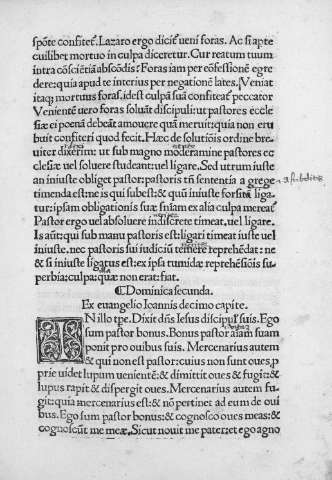 spõte confitet᷑. Lazaro ergo dicit᷑ veni foras. Ac si apte
cuilibet mortuo in culpa diceretur. Cur reatum tuum
intra cõsciẽtiã abscõdis: Foras iam per cõfessionẽ egre
dere: quia apud te interius per negationẽ lates. Veniat
itaq; mortuus foras. idest culpã suã confiteat᷑ peccator
Venientẽ uero foras soluãt discipuli: ut pastores eccle
siæ ei poenã debeãt amouere quã meruit: quia non eru
buit confiteri quod fecit. Hæc de solutiõis ordine bre
uiter dixerim: ut sub magno moderamine pastores ec
clesiæ uel soluere studeant: uel ligare. Sed utrum iuste
an iniuste obliget pastor: pastoris tñ sententia a grege
timenda est: ne is qui subest: & quũ iniuste forsitã liga
tur: ipsam obligationis suæ sniam ex alia culpa mereat᷑
Pastor ergo uel absoluere indiscrete timeat, uel ligare.
Is aũt: qui sub manu pastoris est: ligari timeat iuste uel
iniuste. nec pastoris sui iudiciũ temere reprehẽdat: ne
& si iniuste ligatus est: ex ipsa tumidæ reprehẽsiõis su-
perbia: culpa: quæ non erat: fiat.
Dominica secunda.
Ex euangelio Ioannis decimo capite.
IN illo tpe. Dixit dñs Iesus discipul' suis. Ego
sum pastor bonus. Bonus pastor aiam suam
ponit pro ouibus suis. Mercenarius autem
& qui non est pastor: cuius non sunt oues, p
prie uidet lupum uenientẽ: & dimittit oues & fugit: &
lupus rapit & dispergit oues. Mercenarius autem fu-
git: quia mercenarius est: & nõ pertinet ad eum de oui
bus. Ego sum pastor bonus: & cognosco oues meas: &
cognoscũt me meæ. Sicut nouit me pater: et ego agno